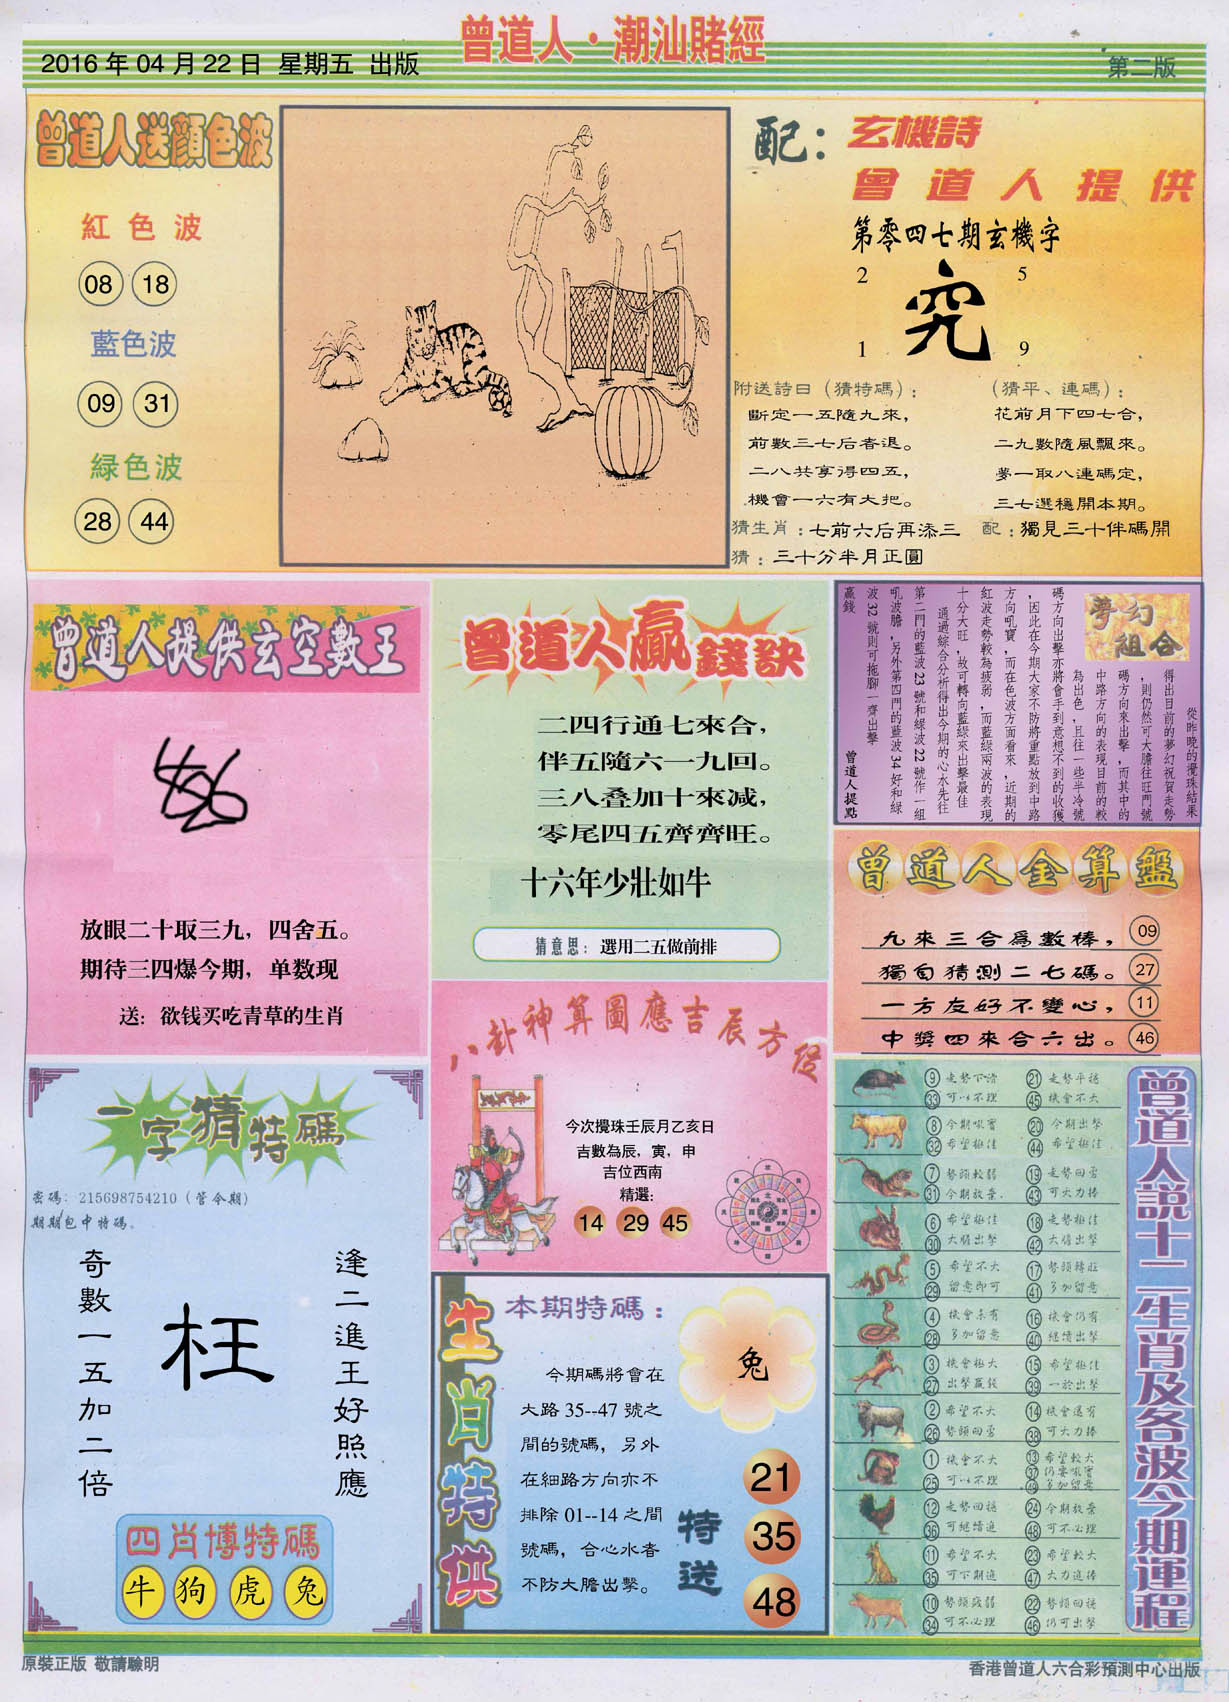 曾道人·潮汕賭經
2016 年 04 月 22 日 星期五 出版
第二版
曾道人送顏色波
紅色波
08 18
藍色波
09 31
緑色波
28 44
配：玄機詩
曾道人提供
第零四七期玄機字
2 5
究
1 9
附送詩曰（猜特碼）：
斷定一五隨九來，
前數三七后者退。
二八共享得四五，
機會一六有大把。
（猜平、連碼）：
花前月下四七合，
二九數隨風飄來。
夢一取八連碼定，
三七選穩開本期。
猜生肖：七前六后再添三
配：獨見三十伴碼開
猜：三十分半月正圓
曾道人提供玄空數王
放眼二十取三九，四舍五。
期待三四爆今期，单数现
送：欲钱买吃青草的生肖
曾道人贏錢訣
二四行通七來合，
伴五隨六一九回。
三八叠加十來减，
零尾四五齊齊旺。
十六年少壯如牛
猜意思：選用二五做前排
夢幻組合
從昨晚的攪珠結果
得出目前的夢幻祝賀走勢
，則仍然可大膽往旺門號
碼方向來出擊，而其中的
中路方向的表現目前的較
為出色，且往一些半冷號
碼方向出擊亦將會手到意想不到的收獲
，因此在今期大家不防將重點放到中路
方向吼寶，而在色波方面看來，近期的
紅波走勢較為疲弱，而藍綠兩波的表現
十分大旺，故可轉向藍綠來出擊最佳
通過綜合分析得出今期的心水先往
第二門的藍波 23 號和綠波 22 號作一組
吼波膽，另外第四門的藍波 34 好和綠
波 32 號則可拖腳一齊出擊
贏錢
曾道人提點
曾道人金算盤
九來三合爲數棒， 09
獨自猜測二七碼。 27
一方友好不變心， 11
中獎四來合六出。 46
八卦神算圖應吉辰方位
今次攪珠壬辰月乙亥日
吉數為辰，寅，申
吉位西南
精選：
14 29 45
一字猜特碼
密碼：215698754210（管令期）
期期包中特碼。
奇數一五加二倍
枉
逢二進王好照應
四肖博特碼
牛 狗 虎 兔
生肖特供
本期特碼：
兔
今期碼將會在
大路 35--47 號之
間的號碼，另外
在細路方向亦不
排除 01--14 之間
號碼，合心水者
不防大膽出擊。
特送
21
35
48
曾道人說十二生肖及各波今期運程
9 走勢下滑 21 走勢平穩
33 可以不理 45 機會不大
8 今期吼寶 20 今期出擊
32 希望極佳 44 希望極佳
7 勢頭較弱 19 走勢回勇
31 今期放棄. 43 可大力捧
6 希望極佳 18 走勢極佳
30 大膽出擊 42 大膽出擊
5 希望不大 17 勢頭轉旺
29 留意即可 41 多加留意
4 機會未有 16 機會仍有
28 多加留意 40 繼續出擊
3 機會極大 15 希望極佳
27 出擊贏錢 39 一於出擊
2 希望不大 14 機會還有
26 勢頭回勇 38 可大力捧
1 機會不大 13 希望較大
25 可以不理 37 仍要吼寶
49 多加留意
12 走勢回穩 24 今期放棄
36 可繼續追 48 可不必理
11 希望不大 23 希望較大
35 可下期追 47 大力追捧
10 勢頭疲弱 22 勢頭回穩
34 可不必理 46 仍可出擊
原裝正版 敬請驗明
香港曾道人六合彩預測中心出版